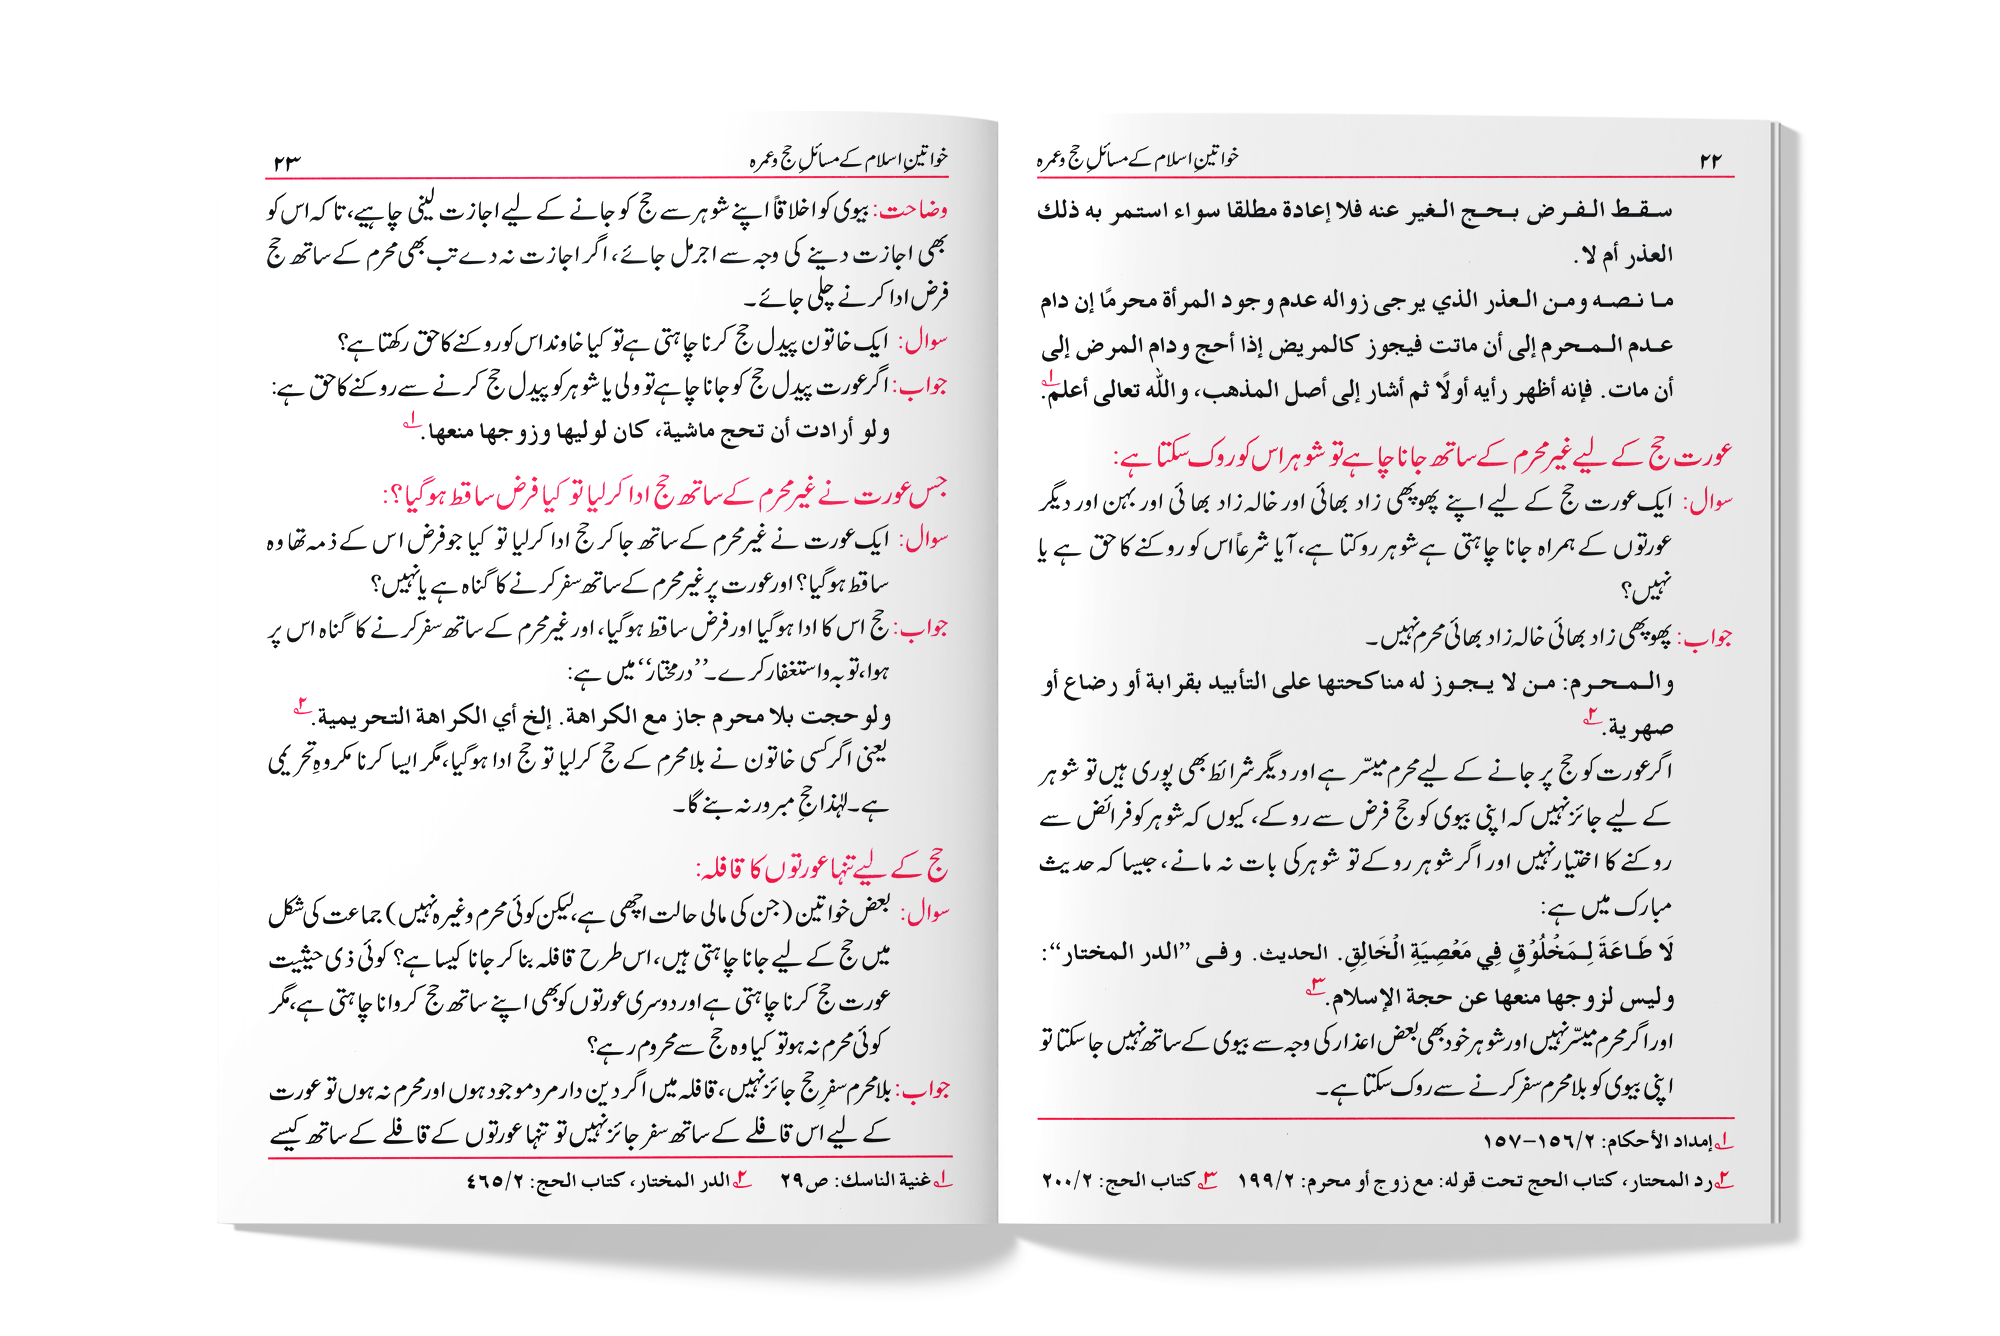 ۲۲
خواتینِ اسلام کے مسائلِ حج و عمرہ
سقط الفرض بحج الغير عنه فلا إعادة مطلقا سواء استمر به ذلك
العذر أم لا.
ما نصه ومن العذر الذي يرجى زواله عدم وجود المرأة محرمًا إن دام
عدم المحرم إلى أن ماتت فيجوز كالمريض إذا أحج ودام المرض إلى
أن مات. فإنه أظهر رأيه أولًا ثم أشار إلى أصل المذهب، والله تعالى أعلم.۱
عورت حج کے لیے غیر محرم کے ساتھ جانا چاہے تو شوہر اس کو روک سکتا ہے:
سوال: ایک عورت حج کے لیے اپنے پھوپھی زاد بھائی اور خالہ زاد بھائی اور بہن اور دیگر
عورتوں کے ہمراہ جانا چاہتی ہے شوہر روکتا ہے، آیا شرعاً اس کو روکنے کا حق ہے یا
نہیں؟
جواب: پھوپھی زاد بھائی خالہ زاد بھائی محرم نہیں۔
والمحرم: من لا يجوز له مناكحتها على التأبيد بقرابة أو رضاع أو
صهرية.۲
اگر عورت کو حج پر جانے کے لیے محرم میسّر ہے اور دیگر شرائط بھی پوری ہیں تو شوہر
کے لیے جائز نہیں کہ اپنی بیوی کو حج فرض سے روکے، کیوں کہ شوہر کو فرائض سے
روکنے کا اختیار نہیں اور اگر شوہر روکے تو شوہر کی بات نہ مانے، جیسا کہ حدیث
مبارک میں ہے:
لَا طَاعَةَ لِمَخْلُوْقٍ فِي مَعْصِيَةِ الْخَالِقِ. الحديث. وفى ”الدر المختار“:
وليس لزوجها منعها عن حجة الإسلام.۳
اور اگر محرم میسّر نہیں اور شوہر خود بھی بعض اعذار کی وجہ سے بیوی کے ساتھ نہیں جا سکتا تو
اپنی بیوی کو بلا محرم سفر کرنے سے روک سکتا ہے۔
۱ إمداد الأحكام: ۲/۱۵۶–۱۵۷
۲ رد المحتار، كتاب الحج تحت قوله: مع زوج أو محرم: ۲/۱۹۹ ۳ كتاب الحج: ۲/۲۰۰
خواتینِ اسلام کے مسائلِ حج و عمرہ
۲۳
وضاحت: بیوی کو اخلاقاً اپنے شوہر سے حج کو جانے کے لیے اجازت لینی چاہیے، تاکہ اس کو
بھی اجازت دینے کی وجہ سے اجر مل جائے، اگر اجازت نہ دے تب بھی محرم کے ساتھ حج
فرض ادا کرنے چلی جائے۔
سوال: ایک خاتون پیدل حج کرنا چاہتی ہے تو کیا خاوند اس کو روکنے کا حق رکھتا ہے؟
جواب: اگر عورت پیدل حج کو جانا چاہے تو ولی یا شوہر کو پیدل حج کرنے سے روکنے کا حق ہے:
ولو أرادت أن تحج ماشية، كان لوليها وزوجها منعها.۱
جس عورت نے غیر محرم کے ساتھ حج ادا کر لیا تو کیا فرض ساقط ہو گیا؟:
سوال: ایک عورت نے غیر محرم کے ساتھ جا کر حج ادا کر لیا تو کیا جو فرض اس کے ذمہ تھا وہ
ساقط ہو گیا؟ اور عورت پر غیر محرم کے ساتھ سفر کرنے کا گناہ ہے یا نہیں؟
جواب: حج اس کا ادا ہو گیا اور فرض ساقط ہو گیا، اور غیر محرم کے ساتھ سفر کرنے کا گناہ اس پر
ہوا، توبہ و استغفار کرے۔ ”در مختار“ میں ہے:
ولو حجت بلا محرم جاز مع الكراهة. إلخ أي الكراهة التحريمية.۲
یعنی اگر کسی خاتون نے بلا محرم کے حج کر لیا تو حج ادا ہو گیا، مگر ایسا کرنا مکروہِ تحریمی
ہے۔ لہٰذا حجِ مبرور نہ بنے گا۔
حج کے لیے تنہا عورتوں کا قافلہ:
سوال: بعض خواتین (جن کی مالی حالت اچھی ہے، لیکن کوئی محرم وغیرہ نہیں) جماعت کی شکل
میں حج کے لیے جانا چاہتی ہیں، اس طرح قافلہ بنا کر جانا کیسا ہے؟ کوئی ذی حیثیت
عورت حج کرنا چاہتی ہے اور دوسری عورتوں کو بھی اپنے ساتھ حج کروانا چاہتی ہے، مگر
کوئی محرم نہ ہو تو کیا وہ حج سے محروم رہے؟
جواب: بلا محرم سفرِ حج جائز نہیں، قافلہ میں اگر دین دار مرد موجود ہوں اور محرم نہ ہوں تو عورت
کے لیے اس قافلے کے ساتھ سفر جائز نہیں تو تنہا عورتوں کے قافلے کے ساتھ کیسے
۱ غنية الناسك: ص۲۹ ۲ الدر المختار، كتاب الحج: ۲/۴۶۵